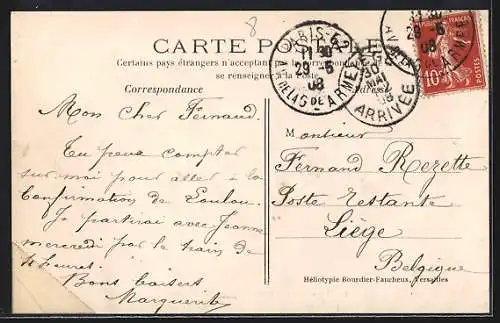 8
CARTE POSTALE
Certains pays étrangers n'acceptant pas la correspondance
se renseigner à la Poste
Correspondance
Adresse
PARIS-62
11 30
29 -5
08
Rue BLAS DE ARMEE
30
MAI
08
ARRIVÉE
29 -5
08
ARMEE
10
Mon cher Fernand.
Tu peux compter
sur moi pour aller à la
Confirmation de Loulou.
Je partirai avec Jeanne
mercredi par le train de
4 heures.
Bons baisers
Marguerite
Monsieur
Fernand Rezette
Poste restante
Liège
Belgique
Héliotypie Bourdier-Faucheux, Versailles